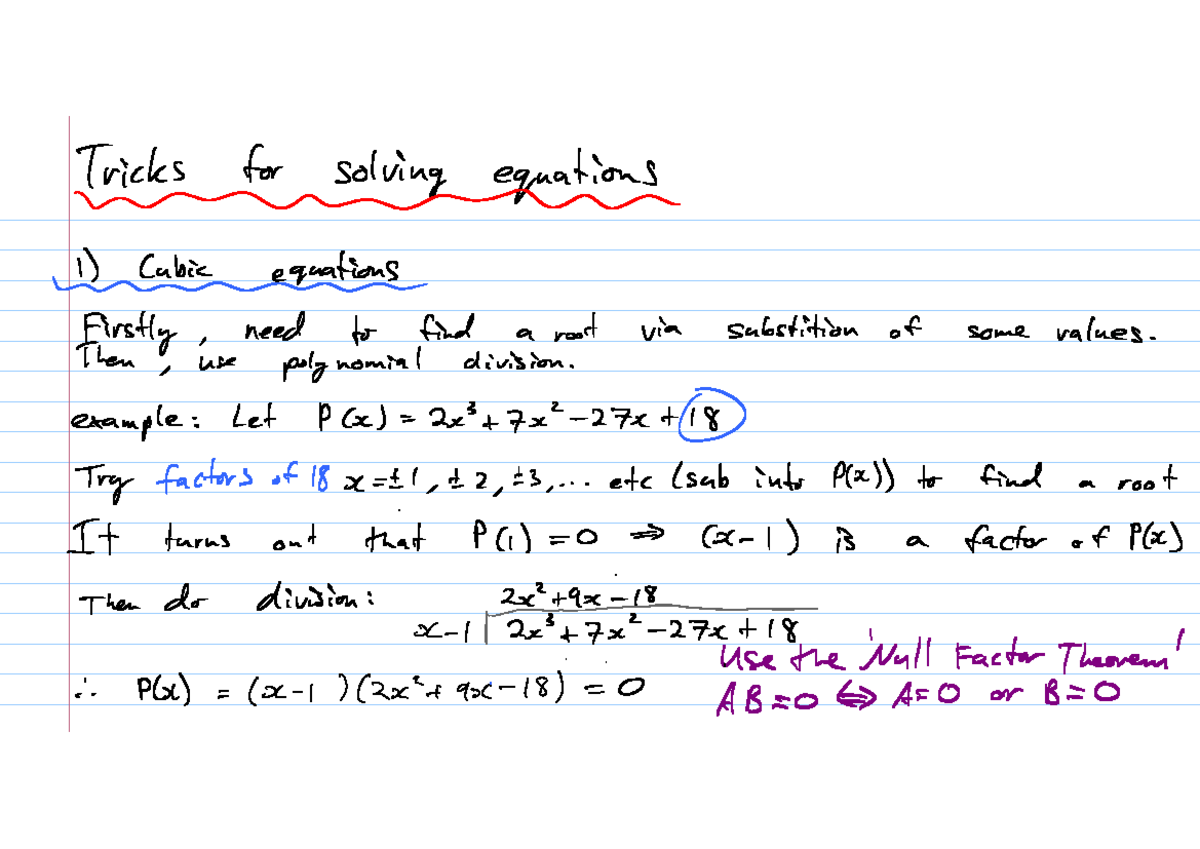 Tricks for solving equations
1) Cubic equations
Firstly, need to find a root via substition of some values.
Then, use polynomial division.
example: Let P(x) = 2x³ + 7x² - 27x + 18
Try factors of 18 x = ±1, ±2, ±3, ... etc (sub into P(x)) to find a root
It turns out that P(1) = 0 ⇒ (x-1) is a factor of P(x)
Then do division: 2x² + 9x - 18
x-1 | 2x³ + 7x² - 27x + 18
Use the 'Null Factor Theorem'
∴ P(x) = (x-1)(2x² + 9x - 18) = 0
AB = 0 ⇔ A = 0 or B = 0